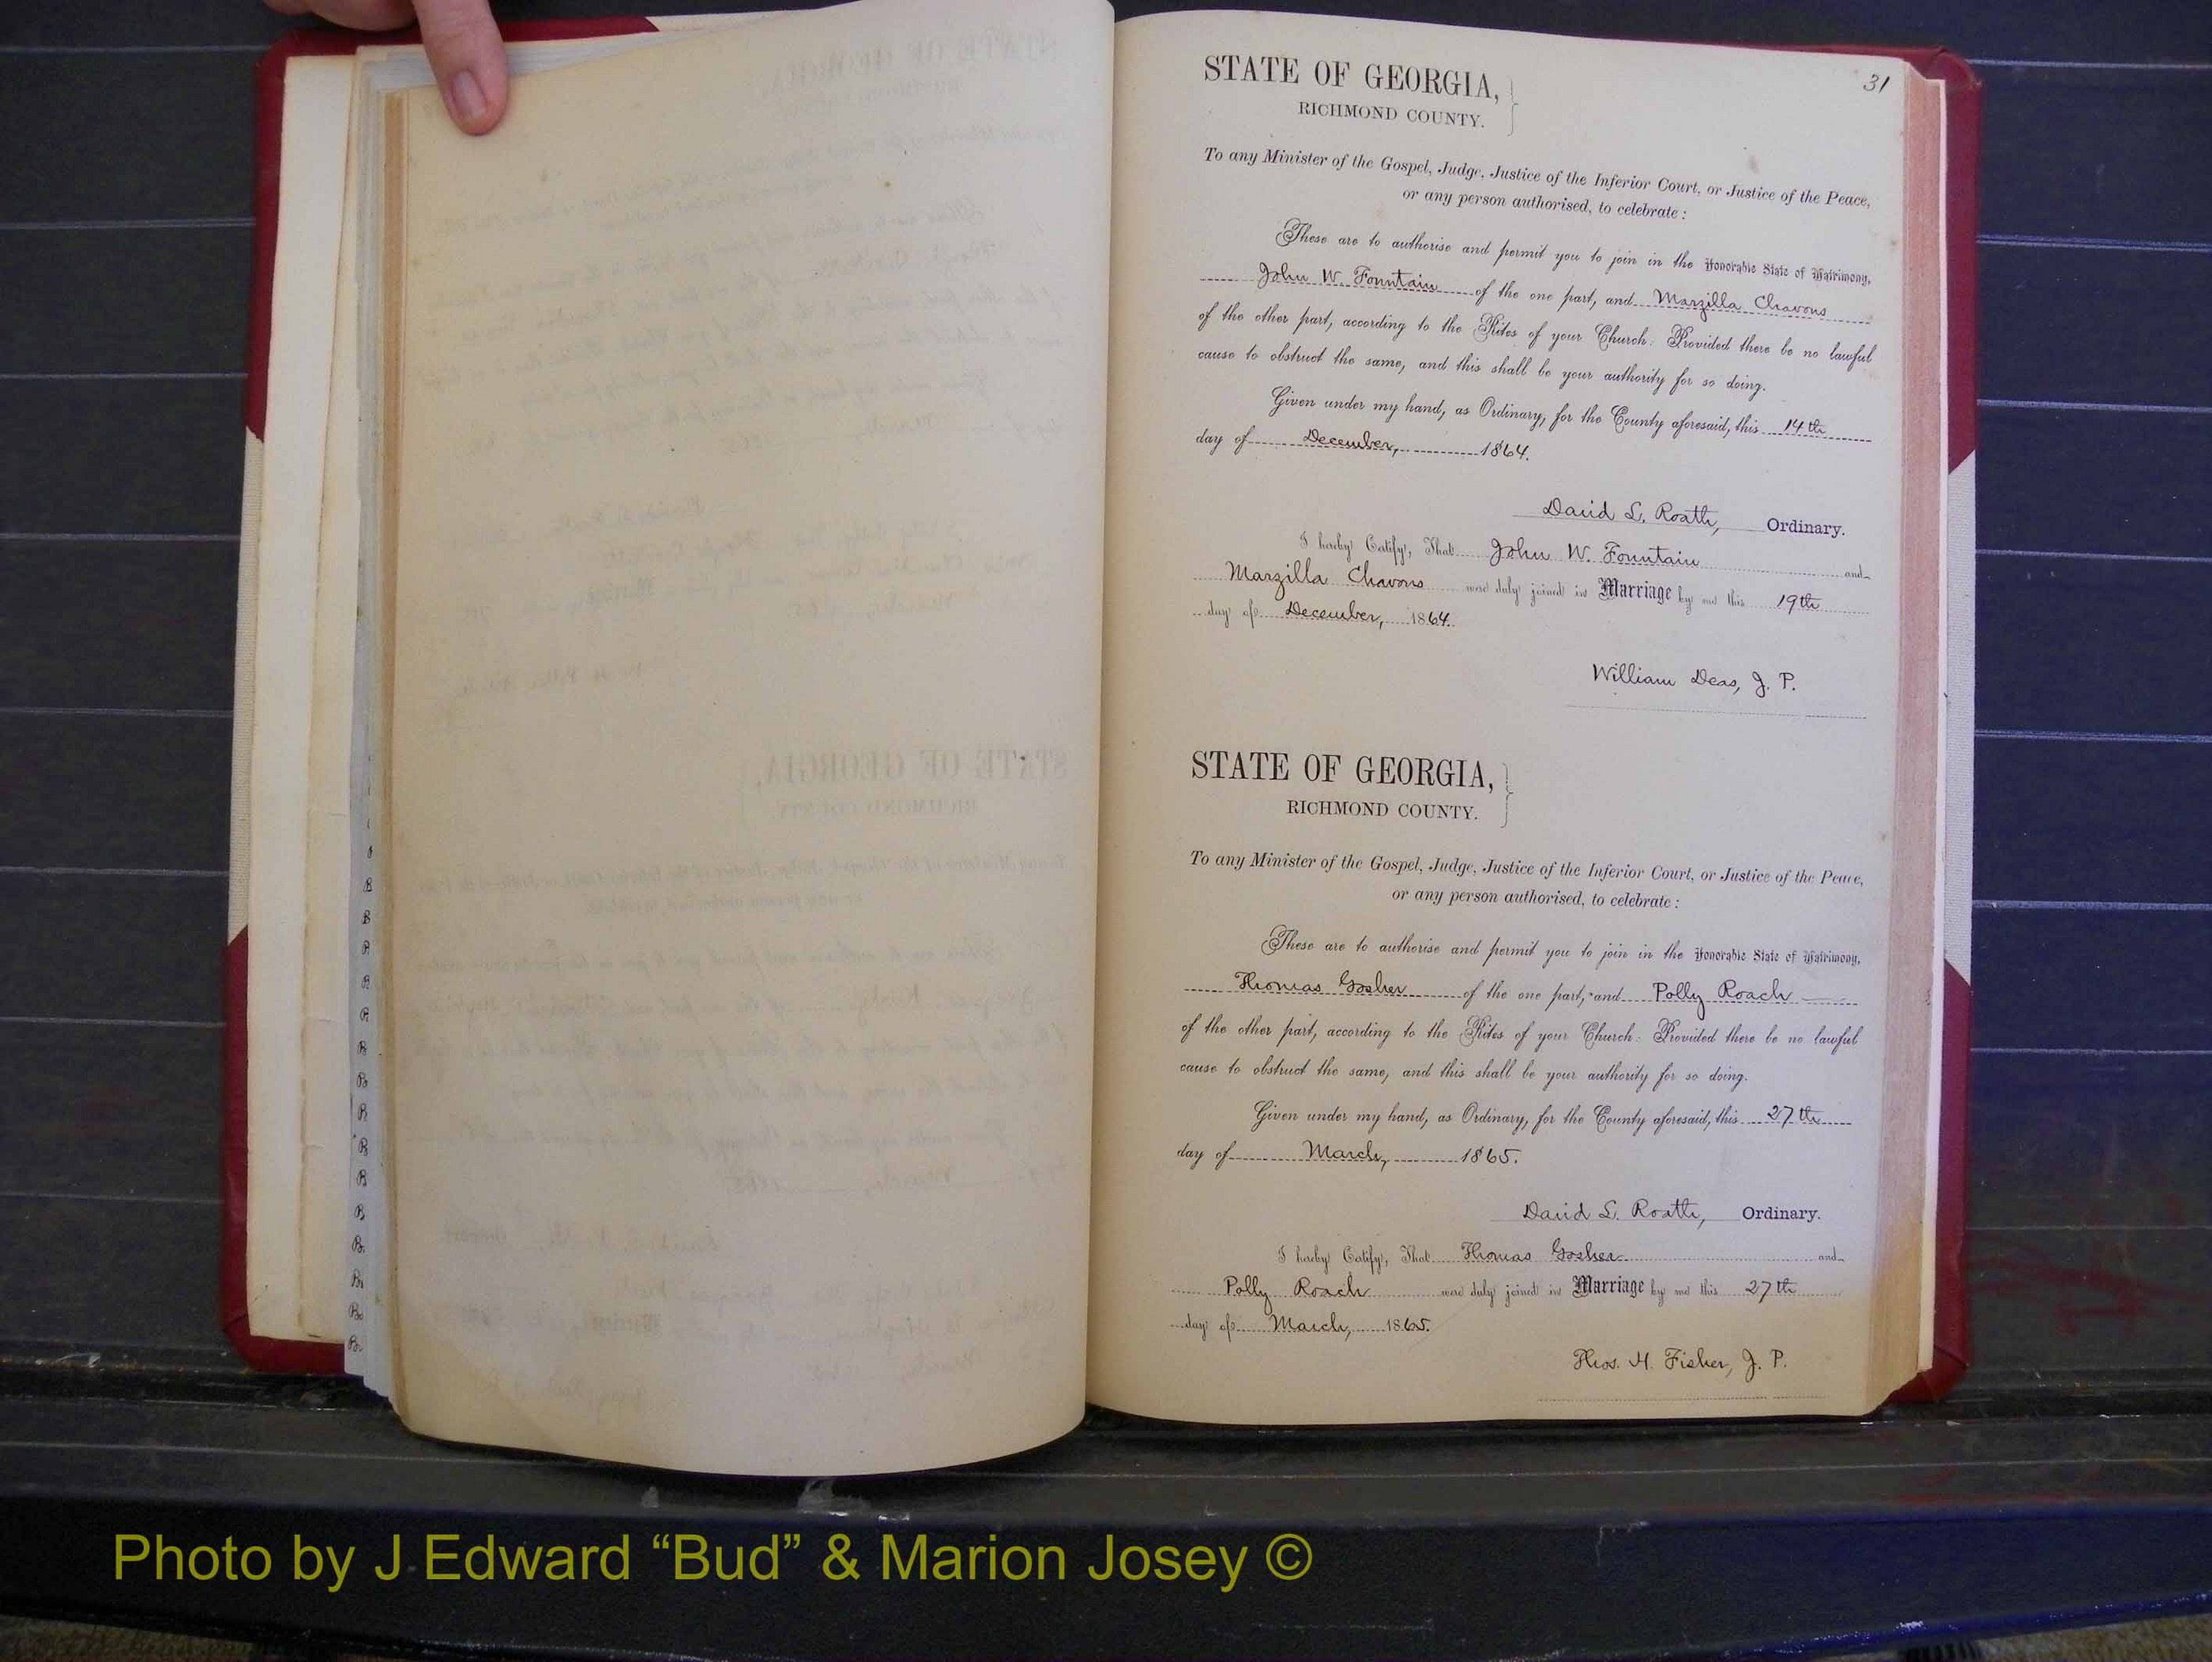 31
STATE OF GEORGIA,
RICHMOND COUNTY.
To any Minister of the Gospel, Judge, Justice of the Inferior Court, or Justice of the Peace,
or any person authorised, to celebrate:
These are to authorise and permit you to join in the Honorable State of Matrimony,
John W. Fountain of the one part, and Marzilla Chavons
of the other part, according to the Rites of your Church: Provided there be no lawful
cause to obstruct the same, and this shall be your authority for so doing.
Given under my hand, as Ordinary, for the County aforesaid, this 14th
day of December, 1864.
David L. Roath, Ordinary.
I hereby Certify, That John W. Fountain and
Marzilla Chavons were duly joined in Marriage by me this 19th
day of December, 1864.
William Deas, J. P.
STATE OF GEORGIA,
RICHMOND COUNTY.
To any Minister of the Gospel, Judge, Justice of the Inferior Court, or Justice of the Peace,
or any person authorised, to celebrate:
These are to authorise and permit you to join in the Honorable State of Matrimony,
Thomas Gosher of the one part, and Polly Roach
of the other part, according to the Rites of your Church: Provided there be no lawful
cause to obstruct the same, and this shall be your authority for so doing.
Given under my hand, as Ordinary, for the County aforesaid, this 27th
day of March, 1865.
David L. Roath, Ordinary.
I hereby Certify, That Thomas Gosher and
Polly Roach were duly joined in Marriage by me this 27th
day of March, 1865.
Thos. H. Fisher, J. P.
Photo by J Edward “Bud” & Marion Josey ©